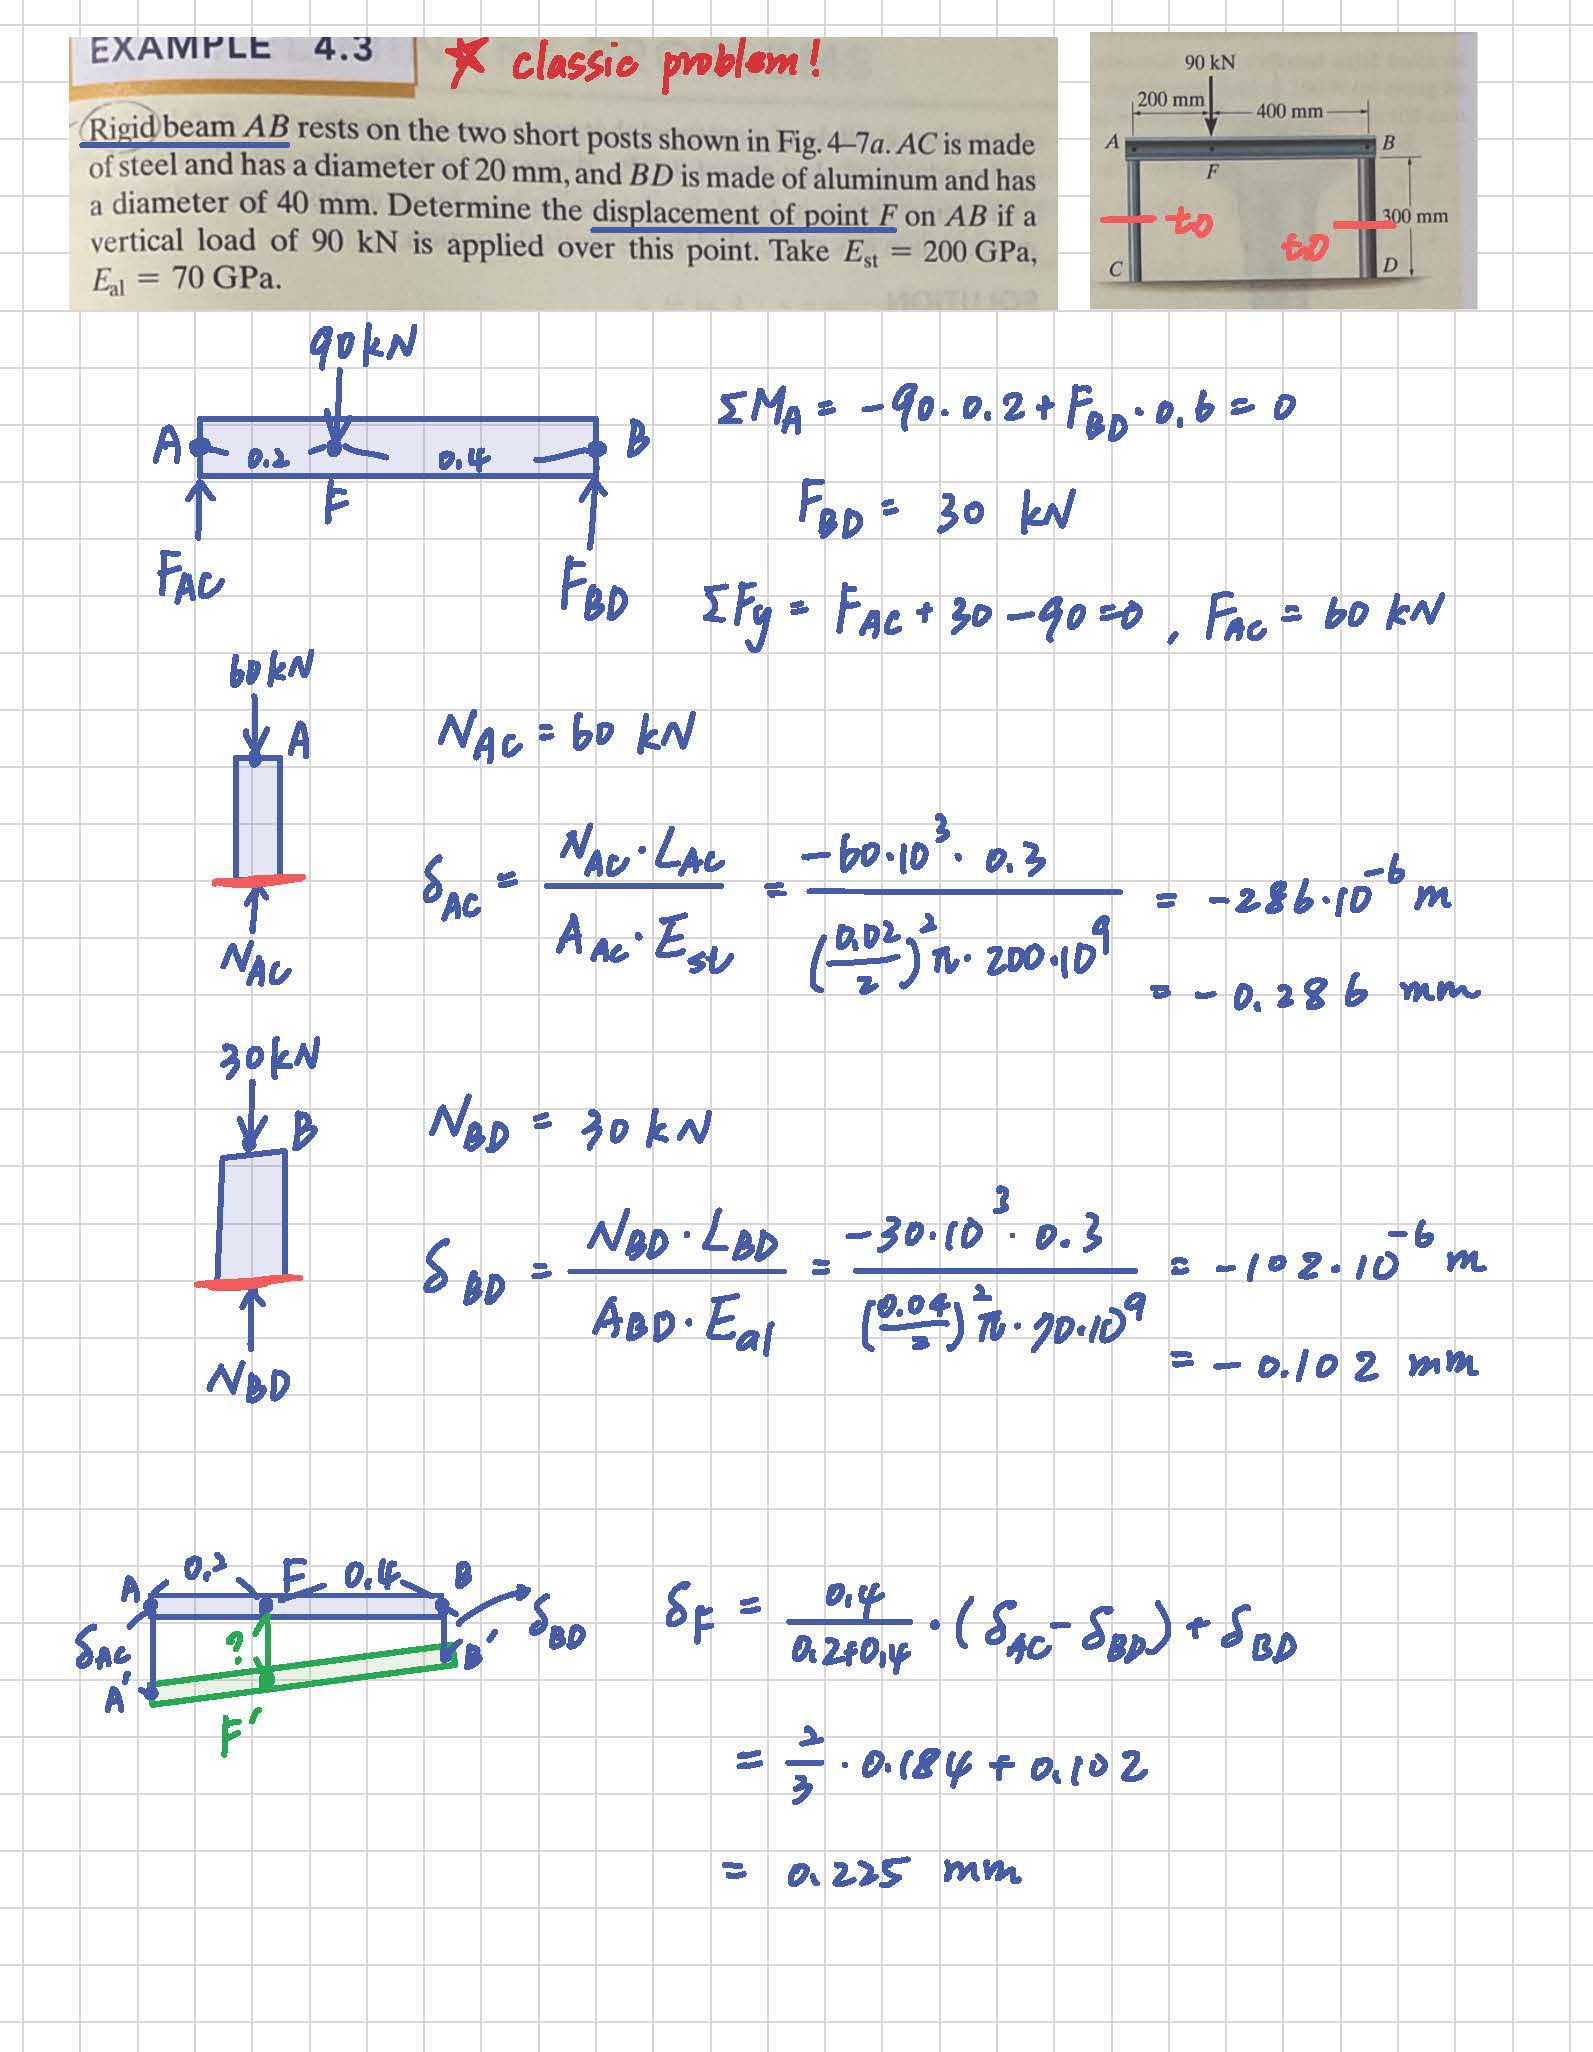 EXAMPLE 4.3
☆ classic problem!
Rigid beam AB rests on the two short posts shown in Fig. 4–7a. AC is made
of steel and has a diameter of 20 mm, and BD is made of aluminum and has
a diameter of 40 mm. Determine the displacement of point F on AB if a
vertical load of 90 kN is applied over this point. Take E_st = 200 GPa,
E_al = 70 GPa.
90 kN
200 mm 400 mm
A B
F
300 mm
to to
C D
90 kN
A 0.2 0.4 B
F
F_AC F_BD
ΣM_A = -90·0.2 + F_BD·0.6 = 0
F_BD = 30 kN
ΣF_y = F_AC + 30 - 90 = 0, F_AC = 60 kN
60 kN
A
N_AC
N_AC = 60 kN
δ_AC = (N_AC·L_AC)/(A_AC·E_st) = (-60·10³·0.3)/((0.02/2)²π·200·10⁹) = -286·10⁻⁶ m
= -0.286 mm
30 kN
B
N_BD
N_BD = 30 kN
δ_BD = (N_BD·L_BD)/(A_BD·E_al) = (-30·10³·0.3)/((0.04/2)²π·70·10⁹) = -102·10⁻⁶ m
= -0.102 mm
A 0.2 F 0.4 B
δ_AC ? B' δ_BD
A'
F'
δ_F = 0.4/(0.2+0.4)·(δ_AC-δ_BD) + δ_BD
= 2/3·0.184 + 0.102
= 0.225 mm